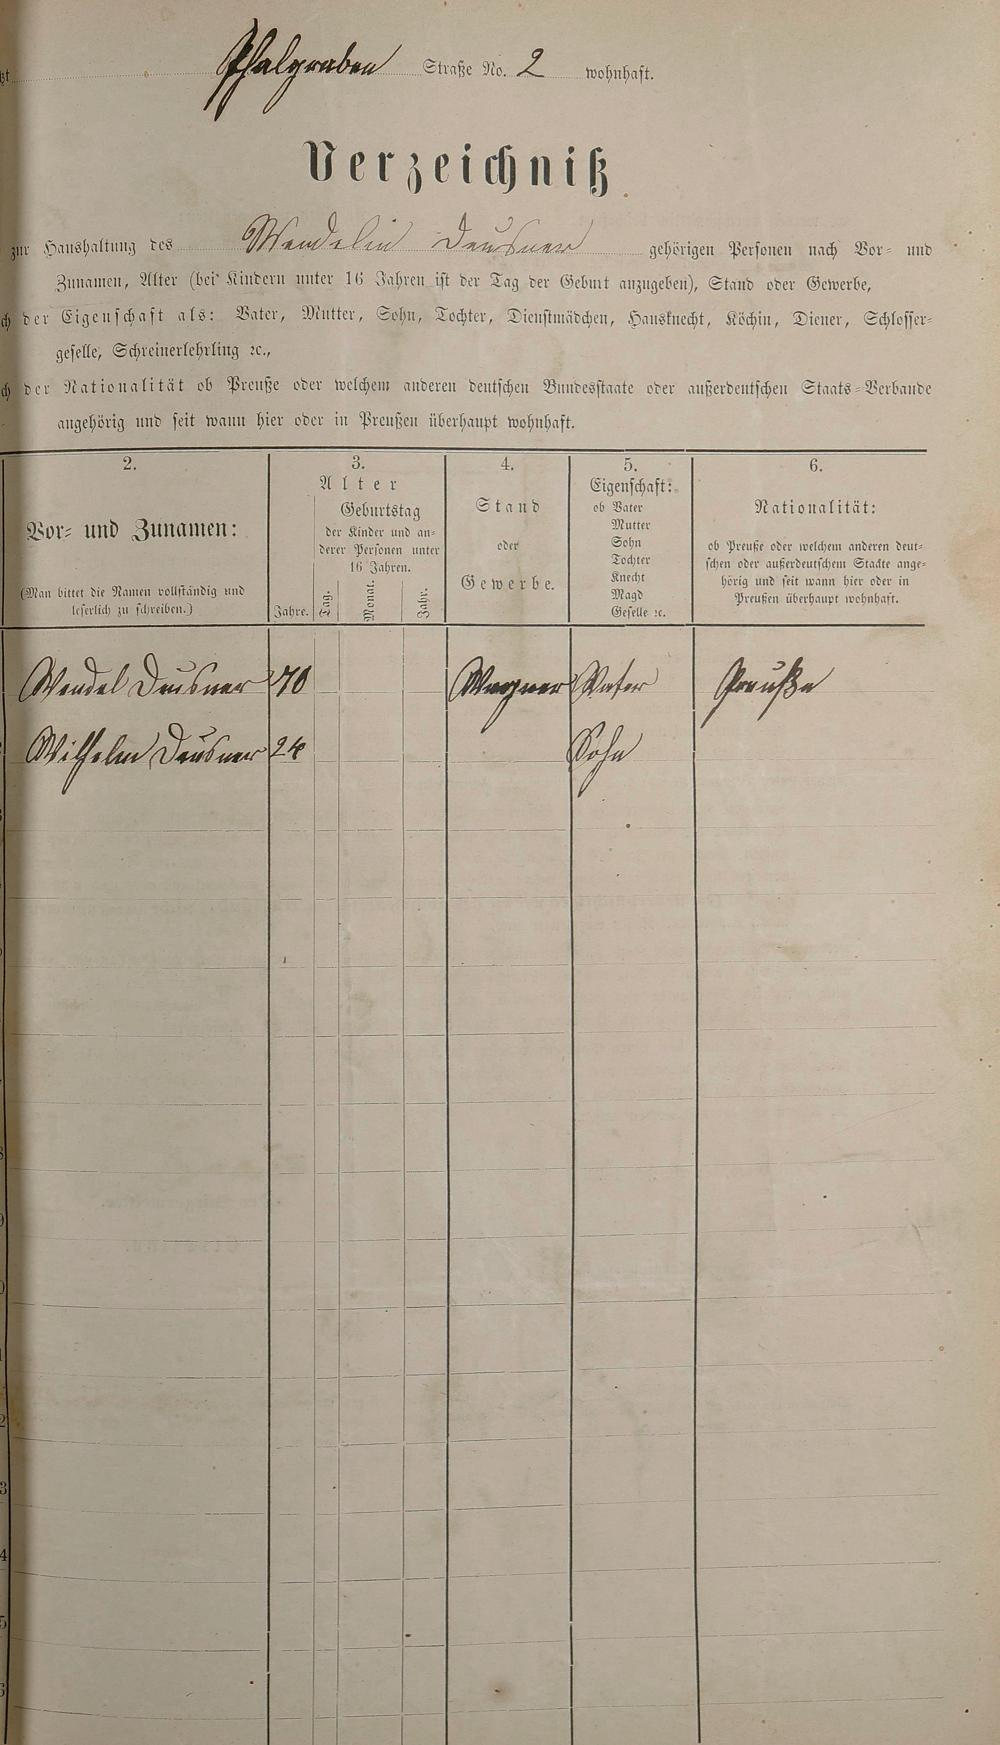 Pfalgraben Straße No. 2 wohnhaft.
Verzeichniß
zur Haushaltung des Wendelin Deusner gehörigen Personen nach Vor- und
Zunamen, Alter (bei Kindern unter 16 Jahren ist der Tag der Geburt anzugeben), Stand oder Gewerbe,
der Eigenschaft als: Vater, Mutter, Sohn, Tochter, Dienstmädchen, Hausknecht, Köchin, Diener, Schlosser-
geselle, Schreinerlehrling ꝛc.,
der Nationalität ob Preuße oder welchem anderen deutschen Bundesstaate oder außerdeutschen Staats-Verbande
angehörig und seit wann hier oder in Preußen überhaupt wohnhaft.
2. 3. 4. 5. 6.
Vor- und Zunamen:
(Man bittet die Namen vollständig und
leserlich zu schreiben.)
Alter
Jahre.
Geburtstag
der Kinder und an-
derer Personen unter
16 Jahren.
Tag. Monat. Jahr.
Stand
oder
Gewerbe.
Eigenschaft:
ob Vater
Mutter
Sohn
Tochter
Knecht
Magd
Geselle ꝛc.
Nationalität:
ob Preuße oder welchem anderen deut-
schen oder außerdeutschem Staate ange-
hörig und seit wann hier oder in
Preußen überhaupt wohnhaft.
Wendel Deusner 70 Wagner Vater Preuße
Wilhelm Deusner 24 Sohn